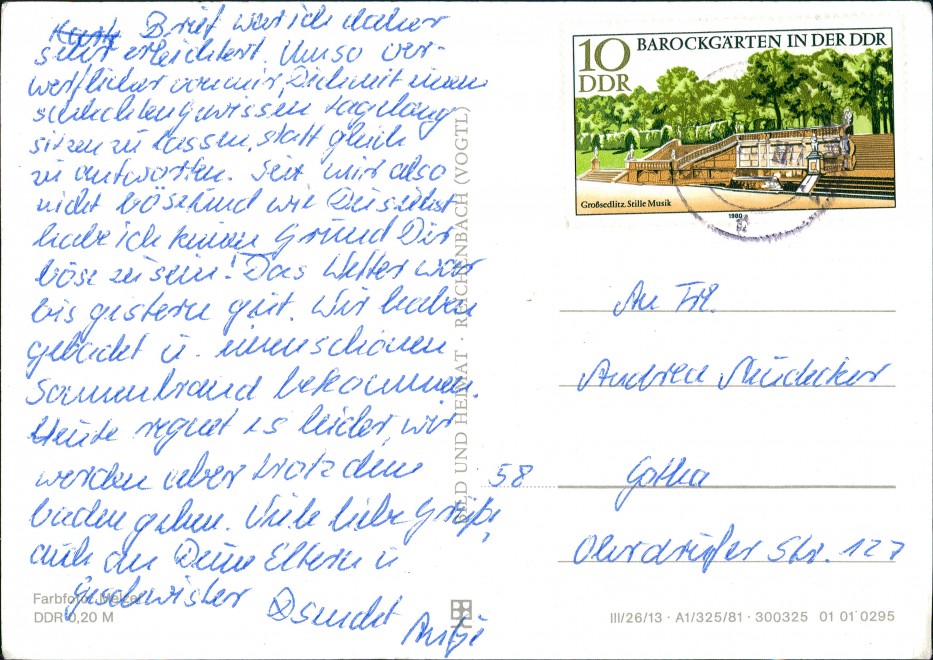 Brief war ich daher
sehr erleichtert. Umso ver-
werflicher von mir, Dich mit einem
schlechten Gewissen tagelang
sitzen zu lassen, statt gleich
zu antworten. Sei mir also
nicht böse und wie Du siehst
habe ich keinen Grund Dir
böse zu sein! Das Wetter war
bis gestern gut. Wir haben
gebadet u. einen schönen
Sonnenbrand bekommen.
Heute regnet es leider, wir
werden aber trotzdem
baden gehen. Viele liebe Grüße,
auch an Deine Eltern u
Geschwister
sendet
Antje
BILD UND HEIMAT · REICHENBACH (VOGTL)
Farbfoto:
DDR 0,20 M
10
DDR
BAROCKGÄRTEN IN DER DDR
Großsedlitz. Stille Musik
1980
An Frl.
Andrea
58 Gotha
Ohrdrufer Str. 127
III/26/13 · A1/325/81 · 300325 01 01 0295